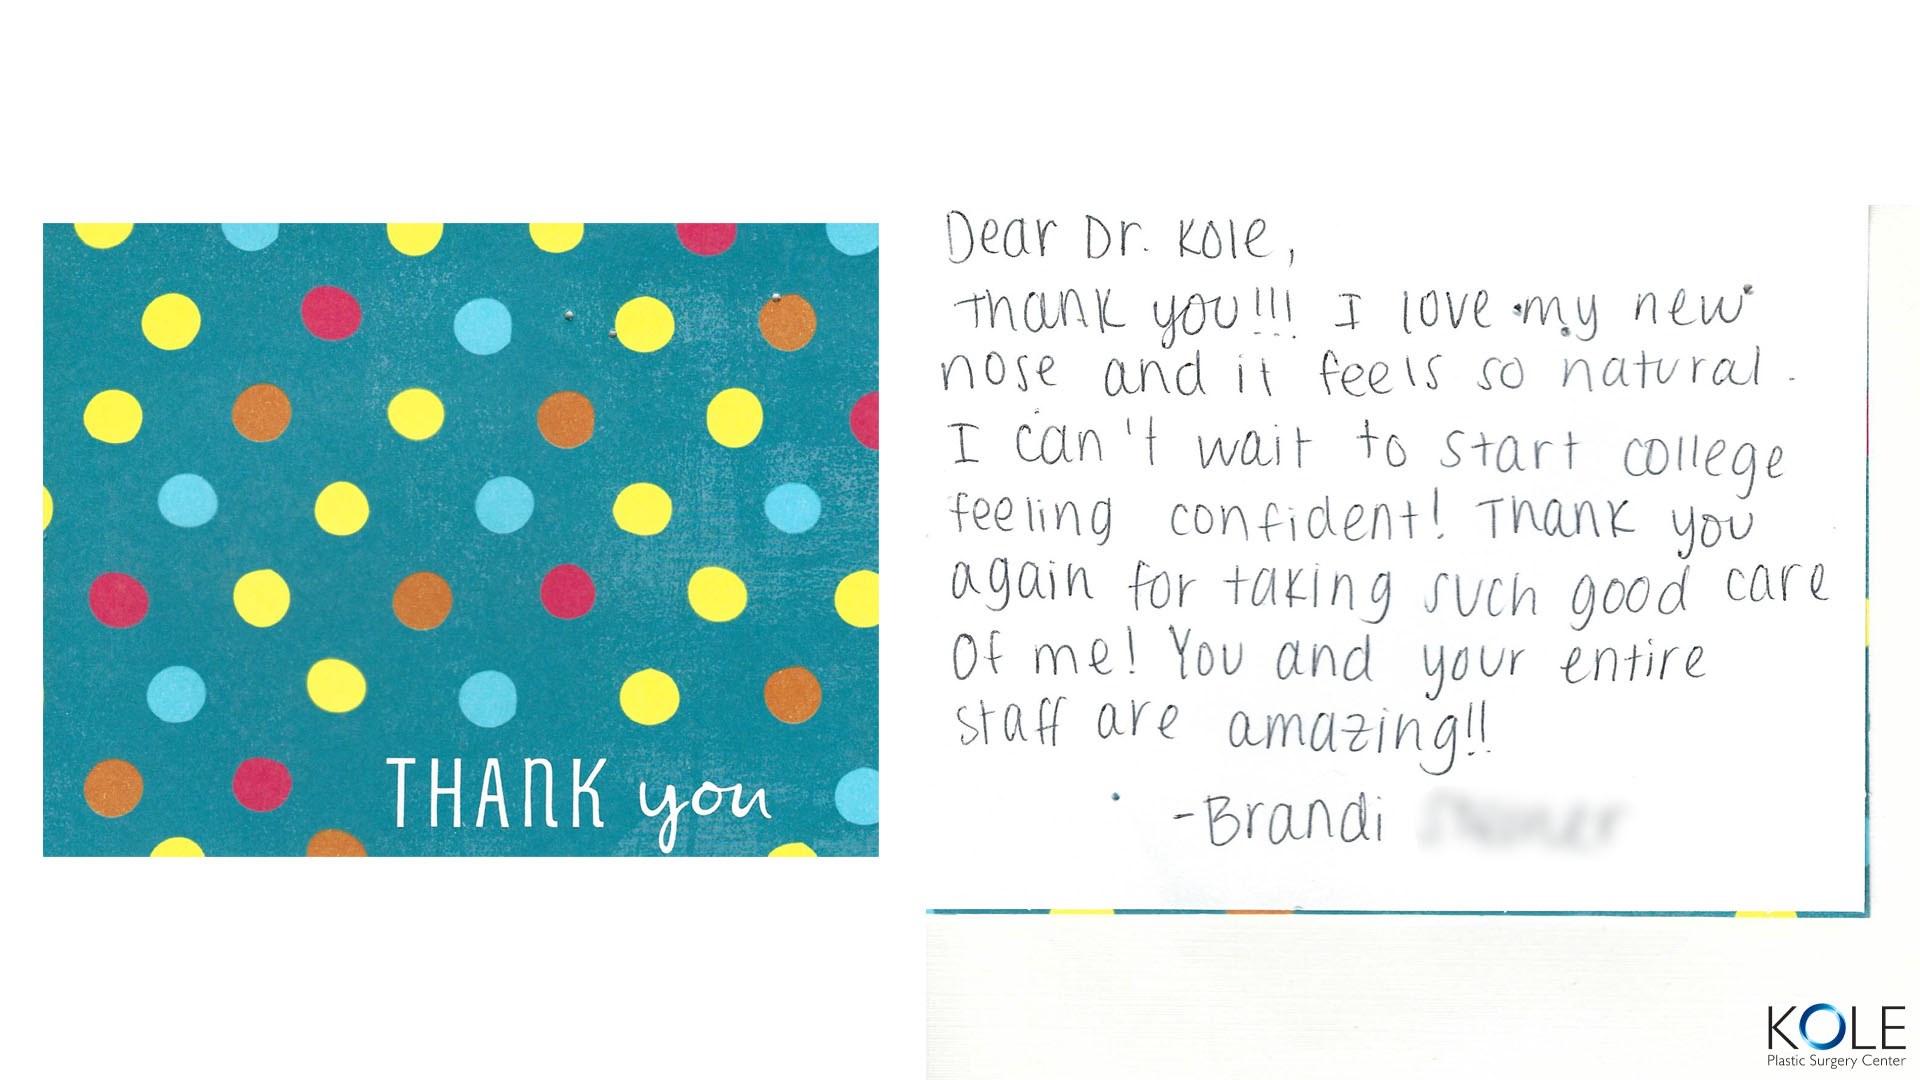 THANK you
Dear Dr. Kole,
Thank you!!! I love my new
nose and it feels so natural.
I can't wait to start college
feeling confident! Thank you
again for taking such good care
of me! You and your entire
staff are amazing!!
-Brandi
KOLE
Plastic Surgery Center